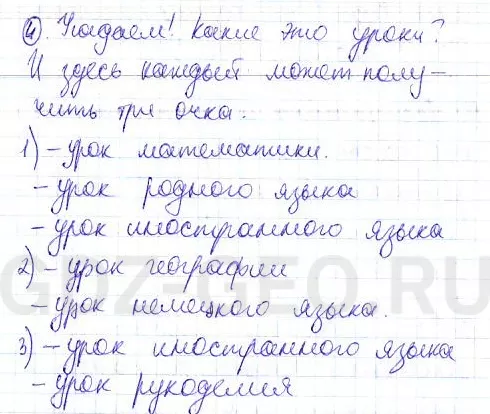 4. Угадаем! Какие это уроки?
И здесь каждый может полу-
чить три очка.
1) – урок математики.
– урок родного языка
– урок иностранного языка
2) – урок географии
GDZ-GEO.RU
– урок немецкого языка.
3) – урок иностранного языка
– урок рукоделия